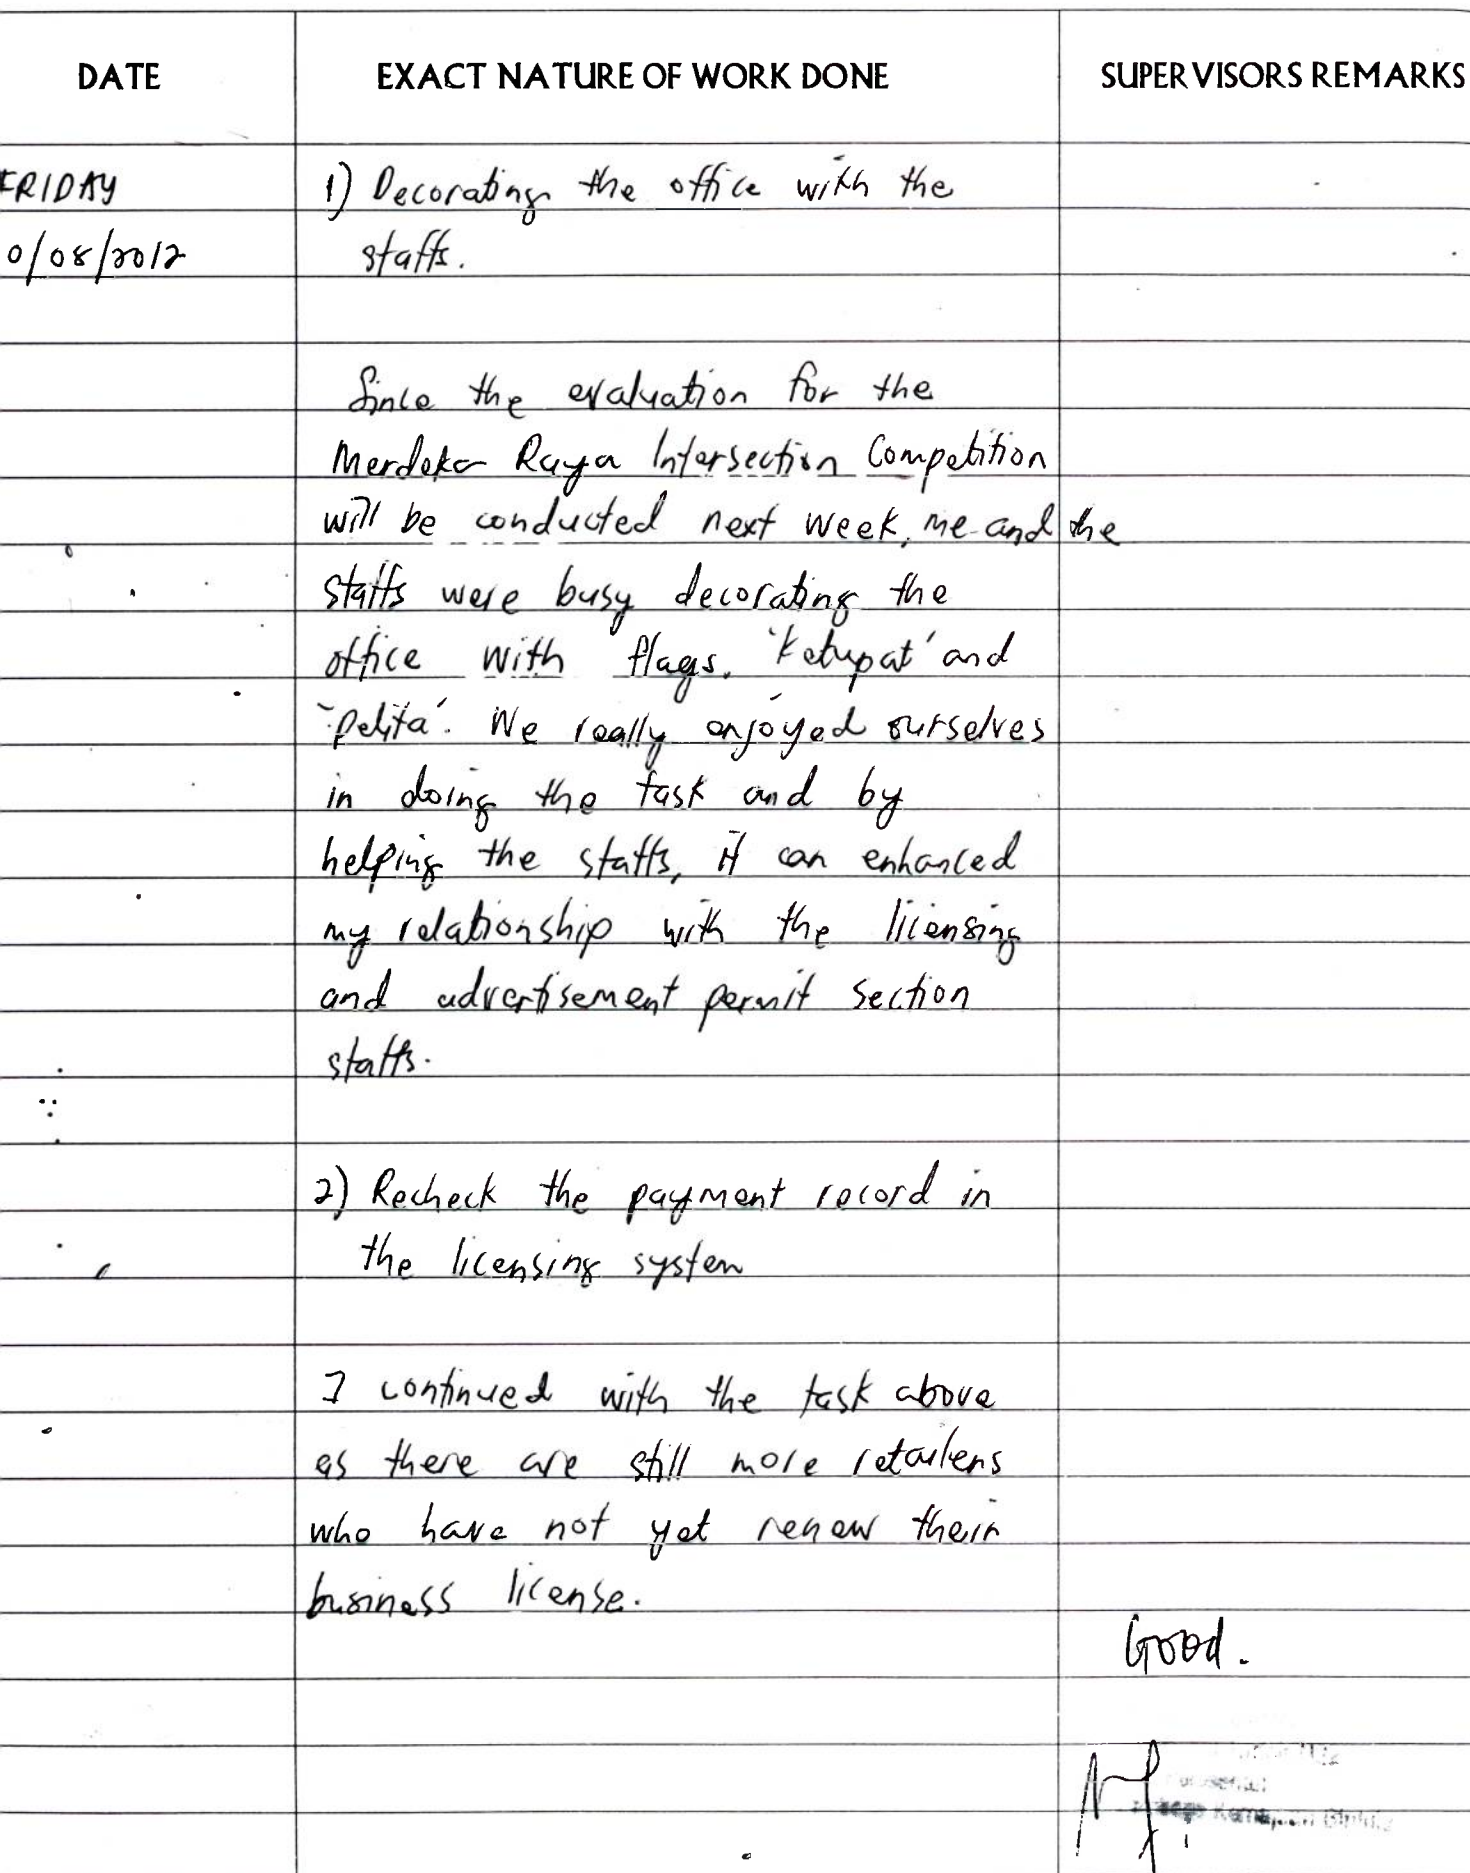 DATE EXACT NATURE OF WORK DONE SUPERVISORS REMARKS
FRIDAY 1) Decorating the office with the
0/08/2012 staffs.
Since the evaluation for the
Merdeka Raya Intersection Competition
will be conducted next week, me and the
staffs were busy decorating the
office with flags, 'Ketupat' and
'Pelita'. We really enjoyed ourselves
in doing the task and by
helping the staffs, it can enhanced
my relationship with the licensing
and advertisement permit section
staffs.
2) Recheck the payment record in
the licensing system
I continued with the task above
as there are still more retailers
who have not yet renew their
business license.
Good.